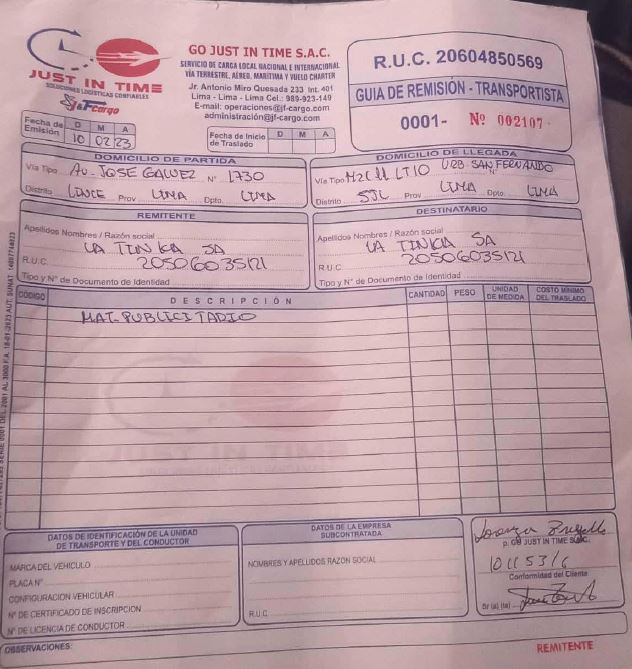 JUST IN TIME
SOLUCIONES LOGÍSTICAS CONFIABLES
J&F cargo
GO JUST IN TIME S.A.C.
SERVICIO DE CARGA LOCAL NACIONAL E INTERNACIONAL
VÍA TERRESTRE, AÉREO, MARÍTIMA Y VUELO CHARTER
Jr. Antonio Miro Quesada 233 Int. 401
Lima - Lima - Lima Cel.: 989-923-149
E-mail: operaciones@jf-cargo.com
administración@jf-cargo.com
R.U.C. 20604850569
GUIA DE REMISIÓN - TRANSPORTISTA
0001- Nº 002107
Fecha de Emisión D M A
10 02 23
Fecha de Inicio de Traslado D M A
DOMICILIO DE PARTIDA
Vía Tipo Av. JOSE GALVEZ Nº 1730
Distrito LINCE Prov LIMA Dpto. LIMA
DOMICILIO DE LLEGADA
Vía Tipo MZC 11 LT10 URB SAN FERNANDO
Distrito SJL Prov LIMA Dpto. LIMA
REMITENTE
Apellidos Nombres / Razón social
LA TINKA SA
R.U.C. 20506035121
Tipo y N° de Documento de Identidad
DESTINATARIO
Apellidos Nombres / Razón social
LA TINKA SA
R.U.C 20506035121
Tipo y N° de Documento de Identidad
CÓDIGO DESCRIPCIÓN CANTIDAD PESO UNIDAD DE MEDIDA COSTO MÍNIMO DEL TRASLADO
MAT. PUBLICITARIO
DATOS DE IDENTIFICACIÓN DE LA UNIDAD DE TRANSPORTE Y DEL CONDUCTOR
MARCA DEL VEHICULO
PLACA N°
CONFIGURACION VEHICULAR
N° DE CERTIFICADO DE INSCRIPCION
N° DE LICENCIA DE CONDUCTOR
DATOS DE LA EMPRESA SUBCONTRATADA
NOMBRES Y APELUDOS RAZON SOCIAL
R.U.C
p. GO JUST IN TIME S.A.C.
Conformidad del Cliente
Sr (a) (ta)
OBSERVACIONES:
REMITENTE